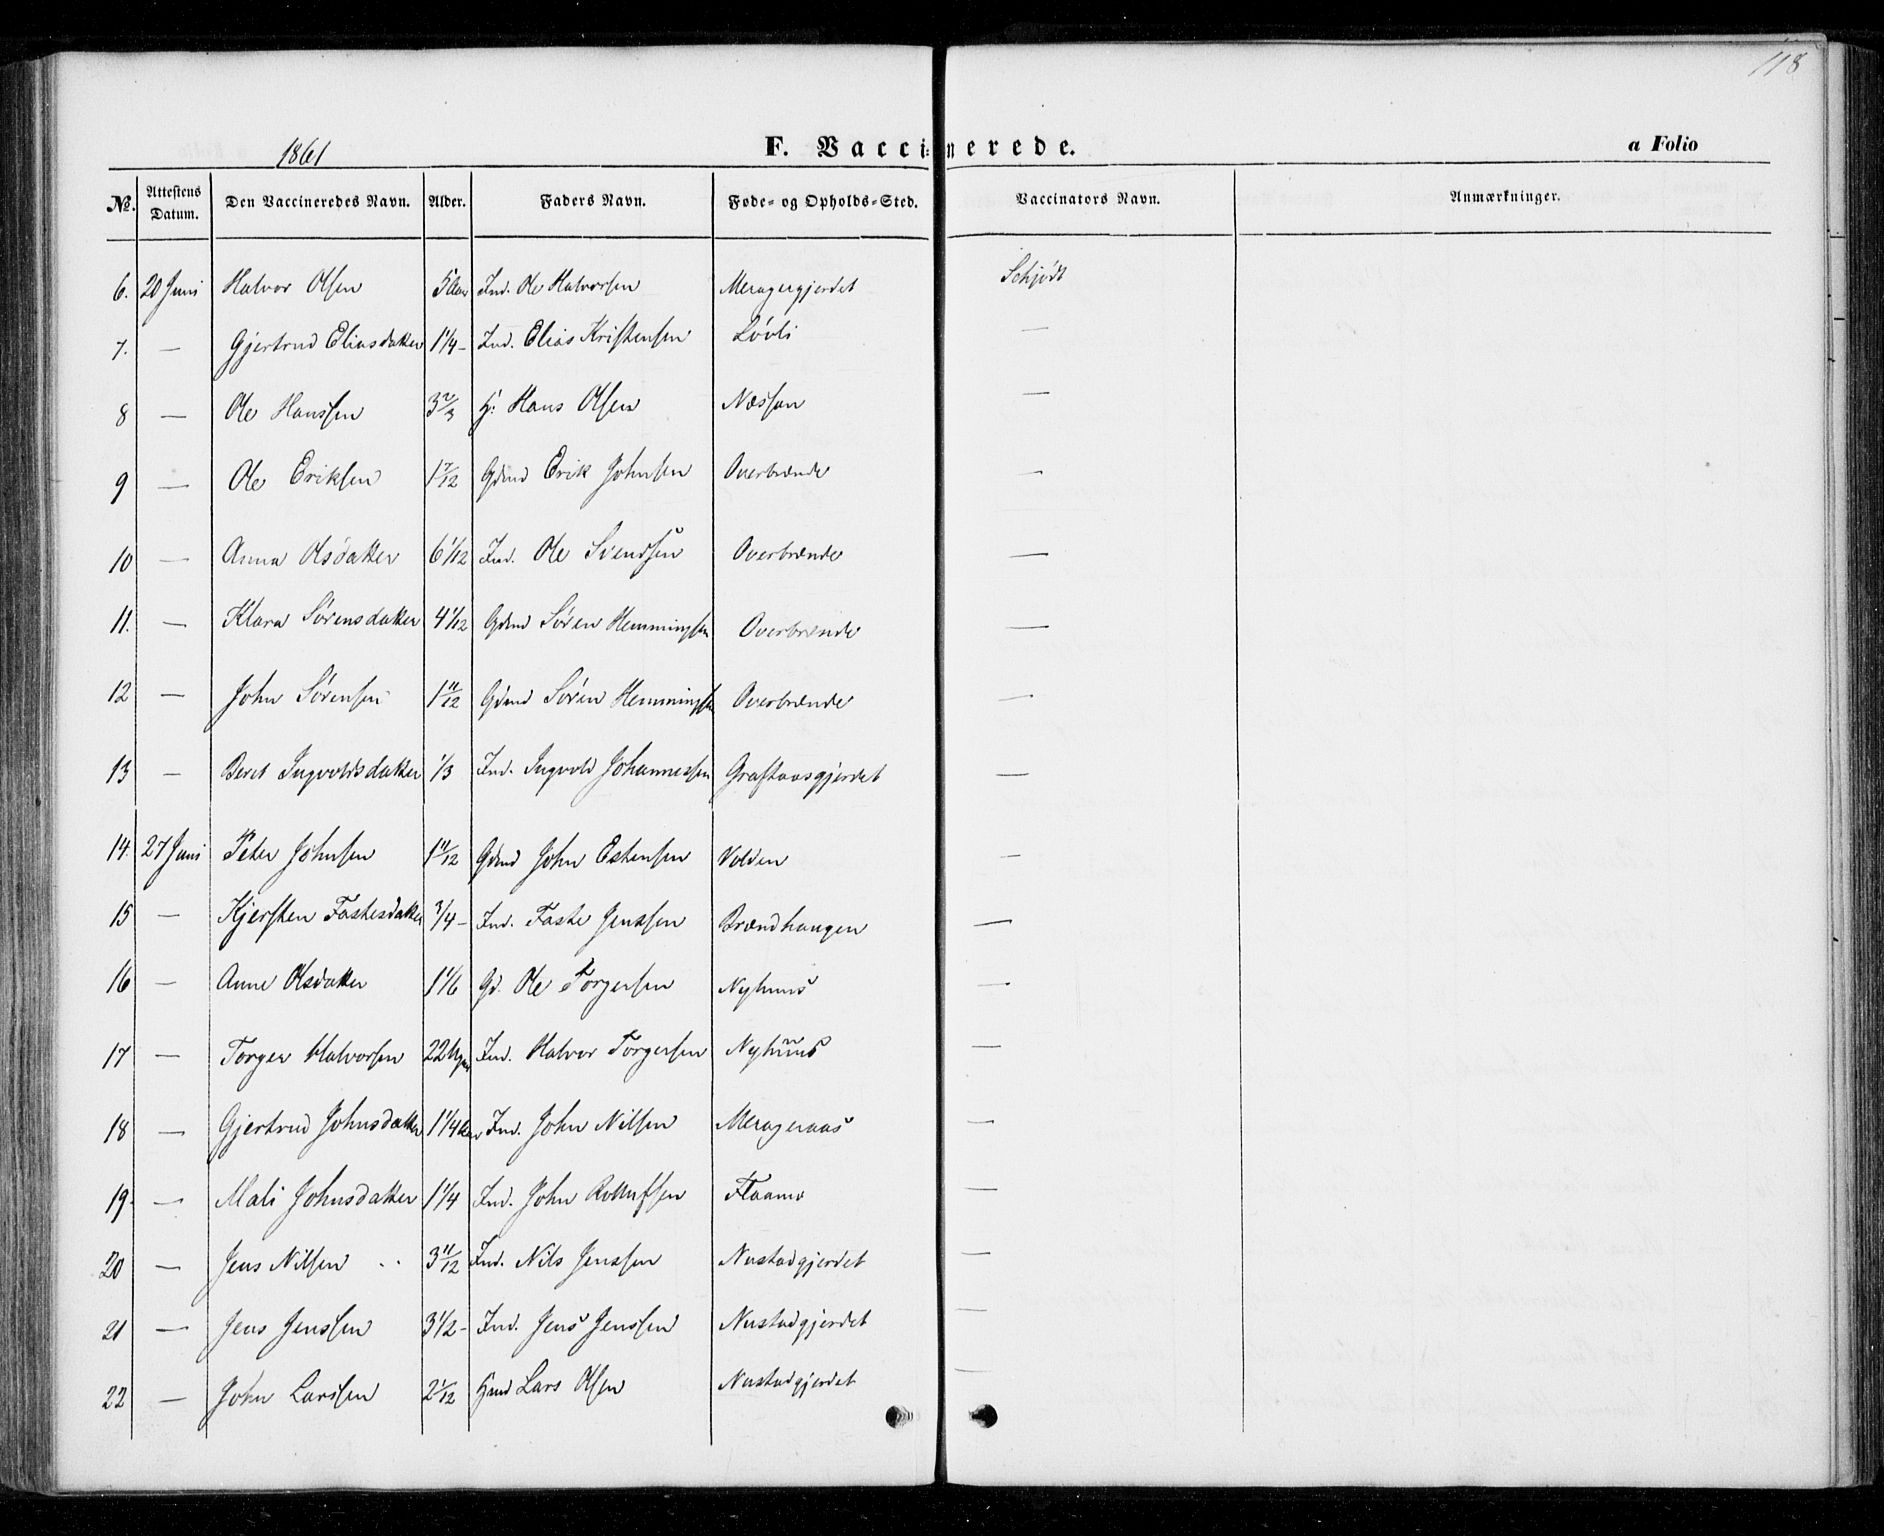 118
1861 F. Vaccinerede. a Folio
No. Attestens Datum. Den Vaccineredes Navn. Alder. Faders Navn. Føde- og Opholds-Sted. Vaccinators Navn. Anmærkninger.
6. 20 Juni Halvor Olsen 5 Aar Ind. Ole Halvorsen Meragergjerdet Schjødt
7. — Gjertrud Eliasdatter 1 1/4 – Ind. Elias Kristensen Løvli —
8 — Ole Hanssen 3 2/3 Hans Olsen Næssan —
9 — Ole Eriksen 1 7/12 Gdmd Erik Johnsen Overbrænde —
10 — Anna Olsdatter 6 1/12 Ind. Ole Svendsen Overbrænde —
11. — Klara Sørensdatter 4 1/12 Gdmd Søren Hemmingsen Overbrænde —
12 — John Sørensen 1 11/12 Gdmd Søren Hemmingsen Overbrænde —
13 — Beret Ingvoldsdatter 1/3 Ind. Ingvold Johannessen Graftaasgjerdet —
14. 27 Juni Peter Johnsen 1 11/12 Gdmd John Estensen Volden —
15 — Kjersten Fastesdatter 3/4 – Ind. Faste Jenssen Brændhaugen —
16 — Anne Olsdatter 1 1/6 Gd. Ole Torgersen Nyhuus —
17 — Torger Halvorsen 22 Uger Ind. Halvor Torgersen Nyhuus —
18 — Gjertrud Johnsdatter 1 1/4 Aar Ind. John Nilsen Merageraas —
19. — Mali Johnsdatter 1 1/4 Ind. John Rollufsen Flaamo —
20 — Jens Nilsen 3 11/12 Ind. Nils Jenssen Nustadgjerdet —
21 — Jens Jenssen 3 1/2 – Ind. Jens Jenssen Nustadgjerdet —
22 — John Larssen 2 1/12 Lars Olsen Nustadgjerdet —